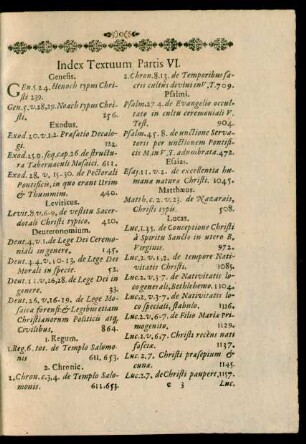 Index Textuum Partis VI.
Genesis.
Gen. 5. 24. Henoch typus Chri-
sti 239.
Gen. 5. v. 28. 29. Noach typus Chri-
sti. 256.
Exodus.
Exod. 20. v. 1. 2. Præfatio Decalo-
gi. 124.
Exod. 25. & seq. cap. 26. de structu-
ra Tabernaculi Mosaici. 611.
Exod. 28. v. 15-30. de Pectorali
Pontificis, in quo erant Urim
& Thummim. 440.
Leviticus.
Levit. 8. v. 6-9. de vestitu Sacer-
dotali Christi typico. 410.
Deuteronomium.
Deut. 4. v. 1. de Lege Dei Ceremo-
niali in genere, 145.
Deut. 4. 4. v. 10-13. de Lege Dei
Morali in specie. 52.
Deut. 11. v. 16, 28. de Lege Dei in
genere. 33.
Deut. 26. v. 16-19. de Lege Mo-
saica forensi & Legibus etiam
Christianorum Politicis atq;
Civilibus, 864.
1. Regum.
1. Reg. 6. tot. de Templo Salomo-
nis 611. 653.
2. Chronic.
2. Chron. c. 3. 4. de Templo Salo-
monis. 611. 653.
2. Chron. 8. 13. de Temporibus sa-
cris cultus divini in V. T. 709.
Psalmi.
Psalm. 27. 4. de Evangelio occul-
tato in cultu ceremoniali V.
Test. 904.
Psalm. 45. 8. de unctione Serva-
toris per unctionem Pontifi-
cis M. in V. T. adumbrata. 472.
Esaias.
Esaj. 11. v. 1. de excellentia hu-
manæ naturæ Christi. 1045.
Matthæus.
Matth. c. 2. v. 23. de Nazaræis,
Christi typis. 508.
Lucas.
Luc. 1. 35. de Conceptione Christi
à Spiritu Sancto in utero B.
Virginis. 972.
Luc. 2. v. 1. 2. de tempore Nati-
vitatis Christi. 1085.
Luc. 2. v. 3-7. de Nativitatis lo-
co generali, Bethlehemo. 1104.
Luc. 2. v. 3-7. de Nativitatis lo-
co speciali, stabulo. 1116.
Luc. 2. v. 6. 7. de Filio Mariæ pri-
mogenito. 1129.
Luc. 2. v. 6. 7. Christi recèns nati
fascia. 1137.
Luc. 2. 7. Christi præsepium &
cuna. 1145.
Luc. 2. 7. de Christi paupere. 1157.
e 3 Luc.